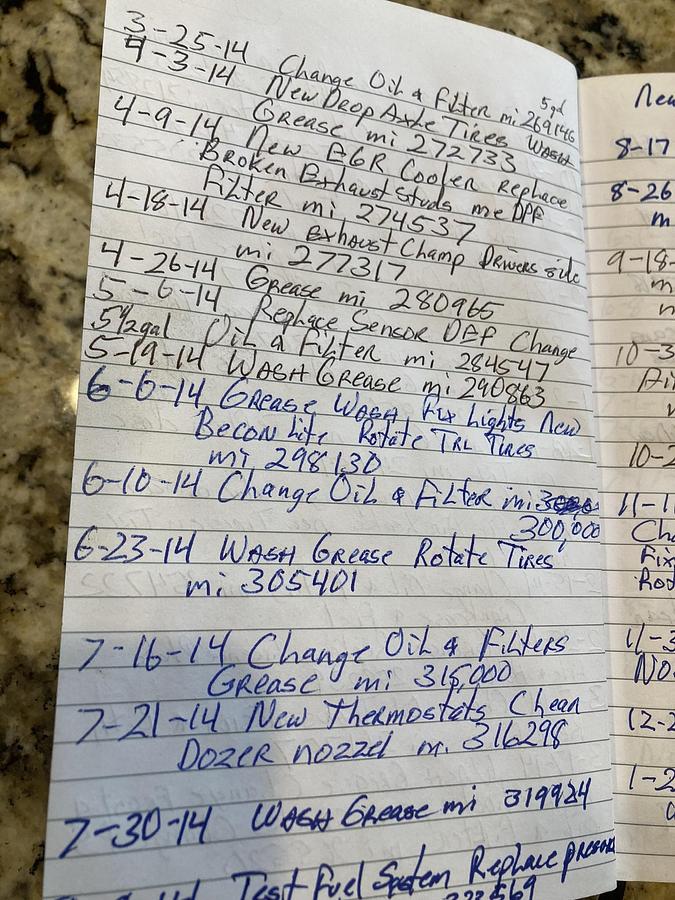 3-25-14 Change Oil & Filter mi 269146 5gal
4-3-14 New Drop Axle Tires Wash
Grease mi 272733
4-9-14 New EGR Cooler Replace
Broken Exhaust Studs DPF
Filter mi 274537
4-18-14 New Exhaust Champ Drivers side
mi 277317
4-26-14 Grease mi 280965
5-6-14 Replace Sensor DEF Change
5 1/2 gal Oil & Filter mi 284547
5-19-14 Wash Grease mi 290863
6-6-14 Grease Wash Fix Lights New
Becon Lite Rotate TRL Tires
mi 298130
6-10-14 Change Oil & Filter mi
300,000
6-23-14 Wash Grease Rotate Tires
mi 305401
7-16-14 Change Oil & Filters
Grease mi 315,000
7-21-14 New Thermostats Clean
Dozer nozzel mi. 316298
7-30-14 Wash Grease mi 319924
Test Fuel System Replace
8-17
8-26
m
9-18-
m
10-3
Air
10-2
11-1
Cha
Fix
Rot
11-3
No
12-2
1-2